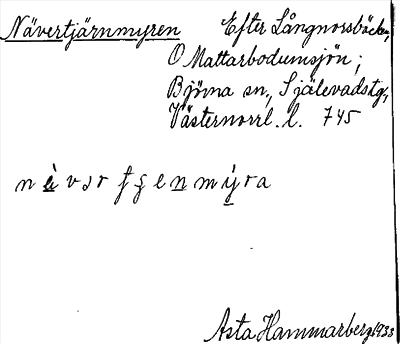 Nävertjärnmyren Efter Långnorsbäcken,
O Mattarbodumsjön;
Björna sn., Själevadstg.,
Västernorrl. l. 745
Asta Hammarberg 1933